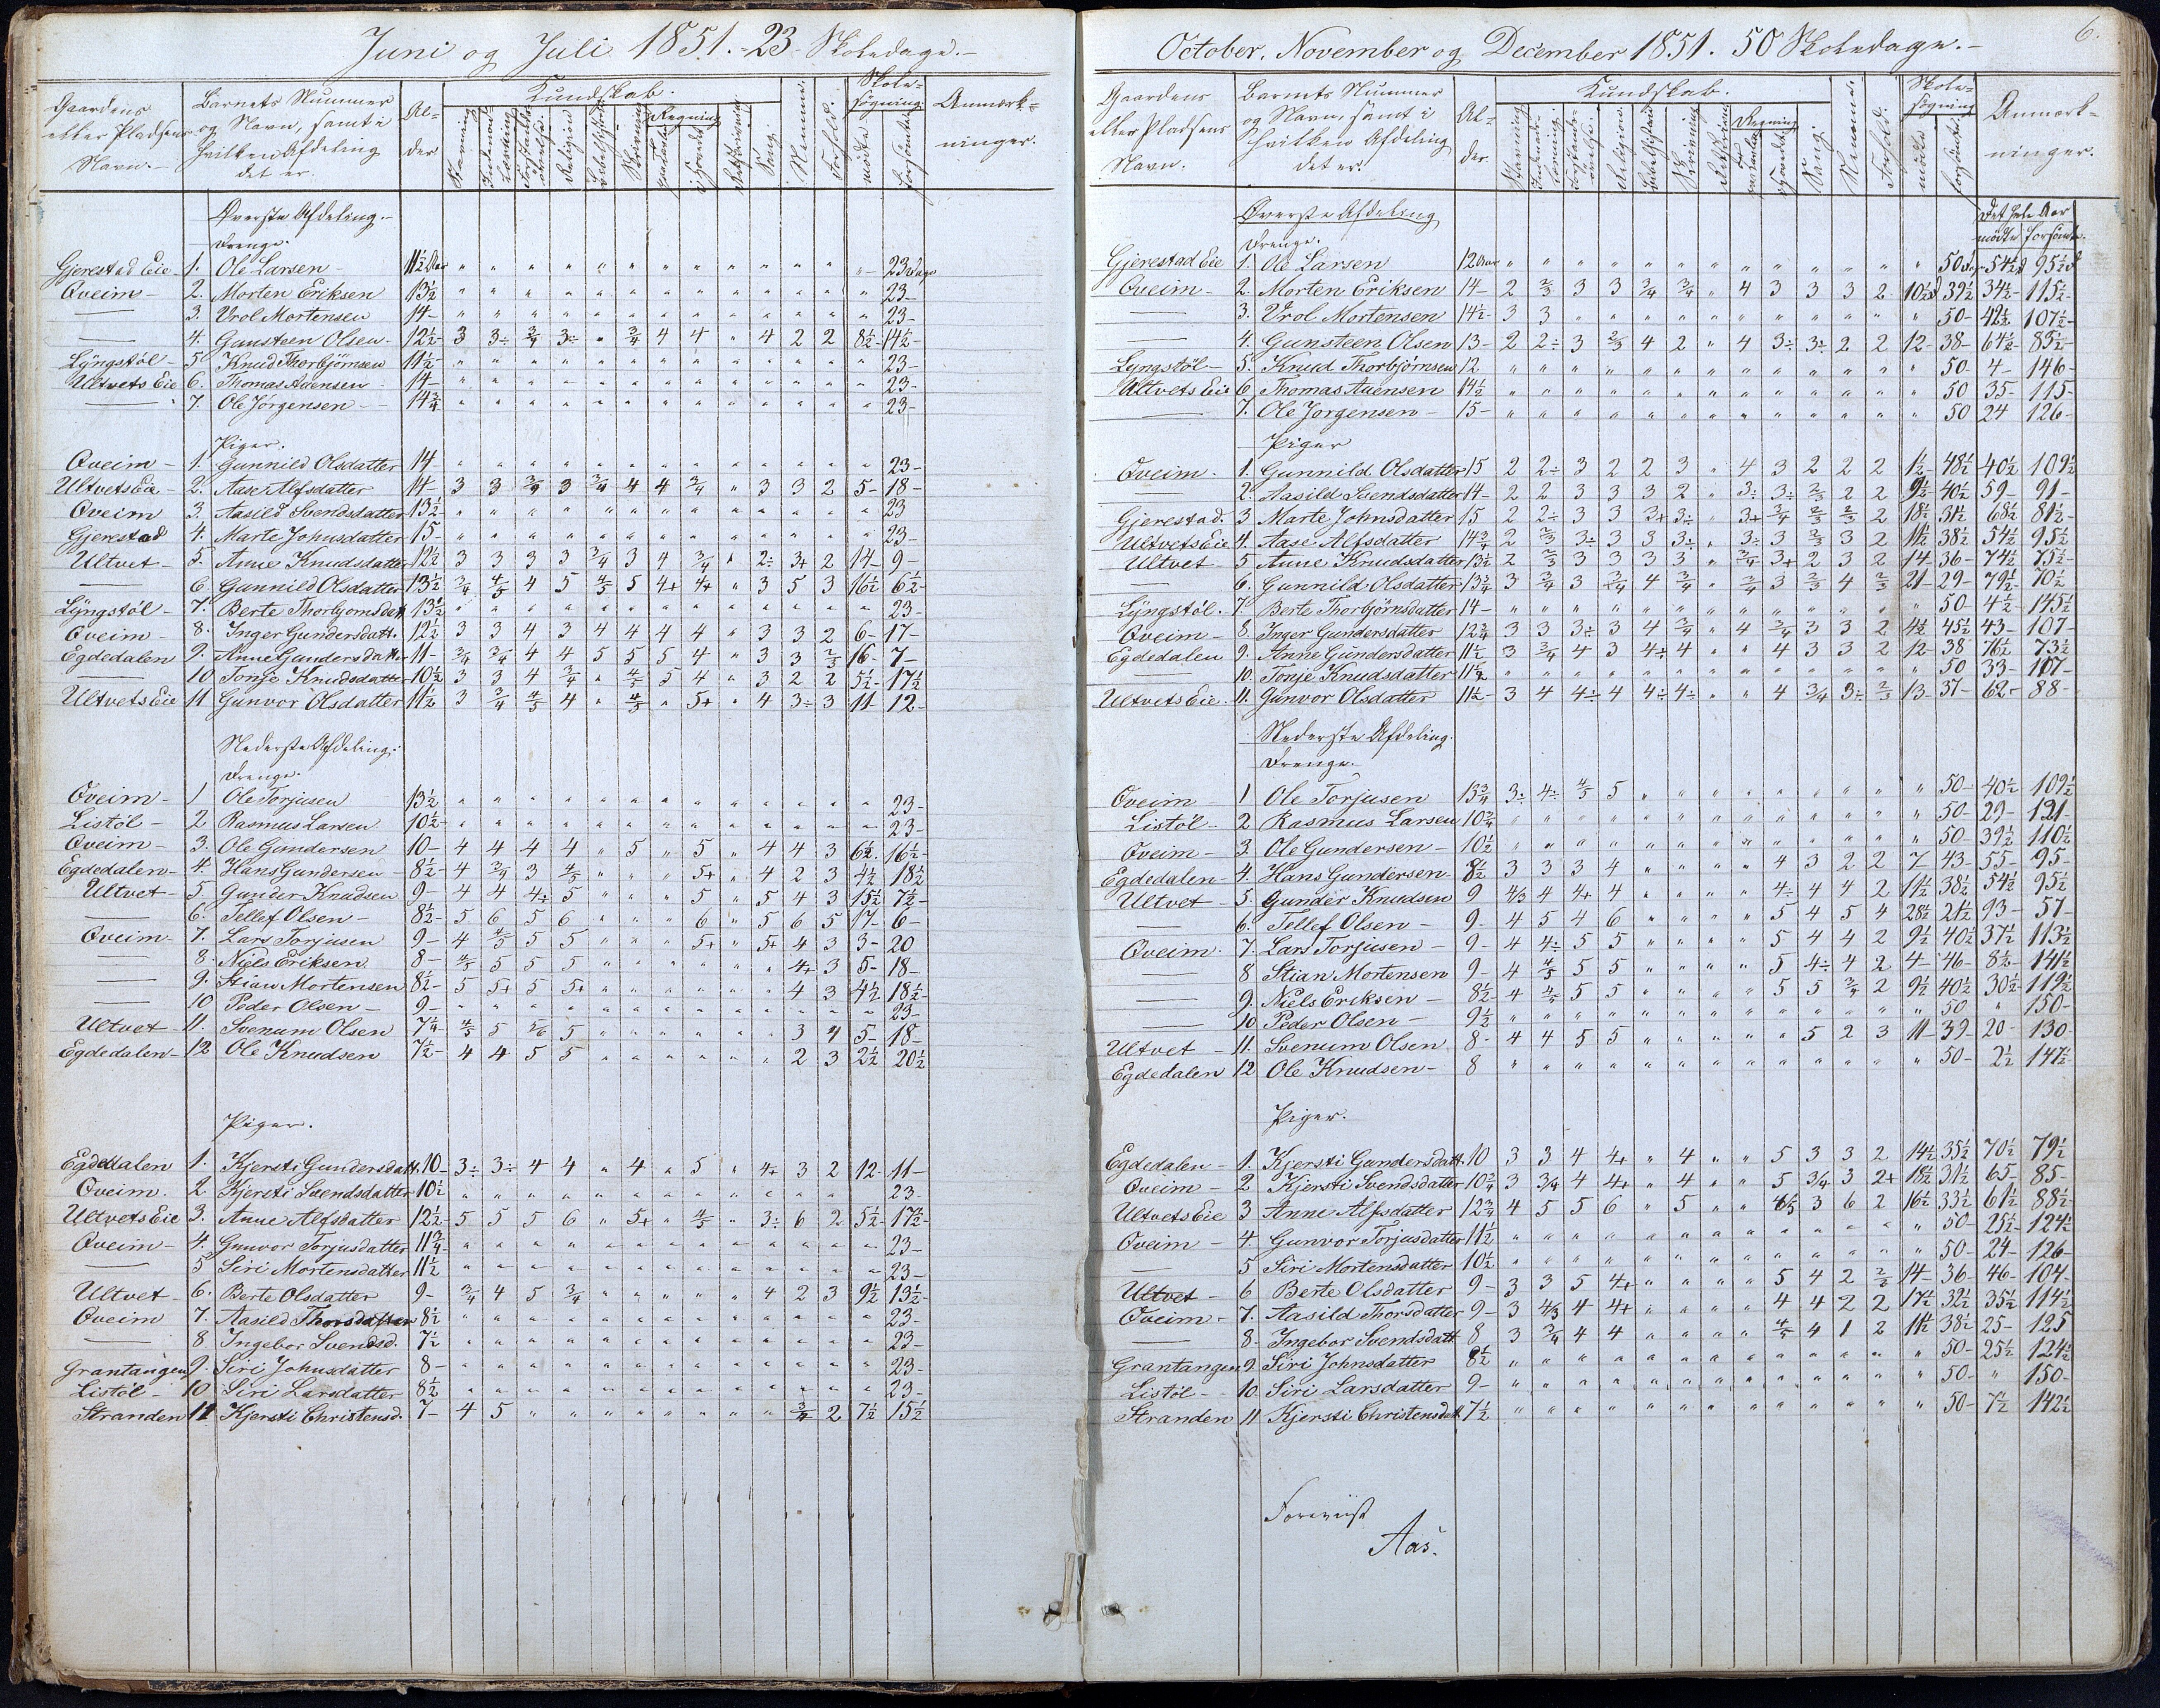 Juni og Juli 1851. 23 Skoledage.-
Gaardens eller Pladsens Navn.- Barnets Nummer og Navn, samt i hvilken Afdeling det er. Al-der Kundskab. Stavning Indenads-Læsning Forstands-øvelse. Religion Bibelhistorie Skrivning Regning paa Tavle i Hovedet Retskrivning Sang. Nemme. Forhold. Skole-søgning mødte forsømte Anmærk-ninger.
Øverste Afdeling.-
Drenge.
Gjerestad Eie 1. Ole Larsen- 11½ Aar " " " " " " " " " " " " " 23 Dage
Qveim- 2. Morten Eriksen 13½ " " " " " " " " " " " " " 23-
— 3. Vrol Mortensen 14- " " " " " " " " " " " " " 23-
— 4. Gunsteen Olsen. 12½- 3 3÷ 3/4 3÷ " 3/4 4 4 " 4 2 2 8½ 14½-
Lyngstøl- 5 Knud Thorbjørnsen 11½- " " " " " " " " " " " " " 23-
Ultvets Eie 6. Thomas Auensen- 14- " " " " " " " " " " " " " 23-
— 7. Ole Jørgensen- 14¾ " " " " " " " " " " " " " 23-
Piger.
Qveim- 1. Gunnild Olsdatter 14- " " " " " " " " " " " " " 23-
Ultvets Eie- 2. Aase Alfsdatter 14- 3 3 3/4 3 3/4 4 4 3/4 " 3 3 2 5- 18-
Qveim 3 Aasild Svendsdatter 13½ " " " " " " " " " " " " " 23
Gjerestad 4. Marte Johnsdatter 15- " " " " " " " " " " " " " 23-
Ultvet- 5. Anne Knudsdatter 12½ 3 3 3 3 3/4 3 4 3/4 " 2÷ 3+ 2 14- 9-
— 6. Gunnild Olsdatter 13½ 3/4 4/5 4 5 4/5 5 4+ 4+ " 3 5 3 16½ 6½-
Lyngstøl- 7. Berte Thorbjornsdatt. 13½ " " " " " " " " " " " " " 23-
Qveim- 8. Inger Gundersdatt. 12½ 3 3 4 3 4 4 4 4 " 3 3 2 6- 17-
Egdedalen 9. Anne Gundersdatter 11- 3/4 3/4 4 4 5 5 5 4 " 3 3 2/3 16- 7-
— 10 Tonje Knudsdatter 10½ 3 3 4 3/4 " 4/5 5 4 " 3 2 2 5½- 17½
Ultvets Eie 11 Gunvor Olsdatter 11½ 3 3/4 4/5 4 " 4/5 " 5+ " 4 3÷ 3 11- 12-
Nederste Afdeling.
Drenge.
Qveim- 1 Ole Torjusen 13½ " " " " " " " " " " " " " 23-
Listøl- 2 Rasmus Larsen 10½- " " " " " " " " " " " " " 23-
Qveim- 3. Ole Gundersen 10- 4 4 4 4 " 5 " 5 " 4 4 3 6½. 16½-
Egdedalen- 4. Hans Gundersen- 8½- 4 3/4 3 4/5 " " " 5+ " 4 2 3 4½ 18½
Ultvet- 5 Gunder Knudsen 9- 4 4 4÷ 5 " " " 5 " 5 4 3 15½ 7½-
— 6. Tellef Olsen- 8½- 5 6 5 6 " " " 6 " 5 6 5 17- 6-
Qveim- 7. Lars Torjusen 9- 4 4/5 5 5 " " " 5+ " 5+ 4 3 3- 20
— 8. Niels Eriksen. 8- 4/5 5 5 5 " " " " " " 4+ 3 5- 18-
— 9. Stian Mortensen 8½- 5 5+ 5 5+ " " " " " " 4 3 4½ 18½-
— 10 Peder Olsen- 9- " " " " " " " " " " " " " 23-
Ultvet- 11. Svenum Olsen 7¼- 4/5 5 5/6 5 " " " " " " 3 4 5- 18-
Egdedalen- 12 Ole Knudsen 7½- 4 4 5 5 " " " " " " 2 3 2½ 20½
Piger.
Egdedalen 1. Kjersti Gundersdatt. 10- 3÷ 3÷ 4 4 " 4 " 5 " 4+ 3 2 12- 11-
Qveim. 2 Kjersti Svendsdatter 10½ " " " " " " " " " " " " " 23-
Ultvets Eie 3. Anne Alfsdatter 12½- 5 5 5 6 " 5+ " 4/5 " 3÷ 6 2 5½- 17½-
Qveim- 4. Gunvor Torjusdatter 11¾- " " " " " " " " " " " " " 23-
— 5 Siri Mortensdatter 11½ " " " " " " " " " " " " " 23-
Ultvet- 6. Berte Olsdatter 9- 3/4 4 5 3/4 " " " " " 4 2 3 9½ 13½-
Qveim 7. Aasild Thorsdatter 8½ " " " " " " " " " " " " " 23-
— 8 Ingebor Svendsd. 7½ " " " " " " " " " " " " " 23-
Grantangen 9. Siri Johnsdatter 8- " " " " " " " " " " " " " 23-
Listøl- 10 Siri Larsdatter 8½ " " " " " " " " " " " " " 23-
Stranden 11 Kjersti Christensd. 7- 4 5 " " " " " " " " 3/4 2 7½ 15½
October, November og December 1851. 50 Skoledage.-
6.
Gaardens eller Pladsens Navn. Barnets Nummer og Navn, samt i hvilken Afdeling det er. Al-der. Kundskab. Stavning Indenads-læsning. Forstands-øvelse. Religion Bibelhistorie Skrivning Retskrivning Regning paa Tavle i Hovedet Sang. Nemme. Forhold. Skole-søgning mødte forsømte Anmærk-ninger.
Øverste Afdeling Det hele Aar
Drenge. mødte forsømte.
Gjerestad Eie 1. Ole Larsen 12 Aar " " " " " " " " " " " " " 50 d. 54½ d 95½ d
Qveim- 2. Morten Eriksen 14- 2 2/3 3 3 3/4 3/4 " 4 3 3 3 2 10½ d 39½ 34½- 115½-
— 3. Vrol Mortensen 14½- 3 3 " " " " " " " " " " " 50- 42½ 107½-
— 4. Gunsteen Olsen 13- 2 2÷ 3 2/3 4 2 " 4 3÷ 3÷ 2 2 12- 38- 64½- 85½-
Lyngstøl- 5. Knud Thorbjørnsen 12 " " " " " " " " " " " " " 50- 4- 146-
Ultvets Eie 6 Thomas Auensen 14½ " " " " " " " " " " " " " 50 35- 115-
— 7. Ole Jorgensen- 15- " " " " " " " " " " " " " 50 24 126-
Piger
Qveim. 1. Gunnild Olsdatter 15 2 2÷ 3 2 2 3 " 4 3 2 2 2 1½- 48½ 40½ 109½
— 2. Aasild Svendsdatter 14- 2 2 3 3 3 2 " 3÷ 3÷ 2/3 2 2 9½- 40½ 59- 91-
Gjerestad. 3 Marte Johnsdatter 15 2 2÷ 3 3 3+ 3÷ " 3+ 3/4 2/3 2/3 2 18½ 31½ 68½ 81½-
Ultvets Eie 4. Aase Alfsdatter 14¾ 2 2/3 3÷ 3 3 3÷ " 3÷ 3 2/3 3 2 11½ 38½ 54½ 95½
Ultvet- 5 Anne Knudsdatter 13½ 2 2/3 3 3 3 3 " 3/4 3+ 2 3 2 14 36- 74½ 75½-
— 6. Gunnild Olsdatter 13¾ 3 3/4 3 3/4 4 3/4 " 3/4 3 2/3 4 2/3 21 29- 79½ 70½
Lyngstøl. 7. Berte Thorbjørnsdatter 14- " " " " " " " " " " " " " 50- 4½- 145½
Qveim- 8. Inger Gundersdatter 12¾ 3 3 3÷ 3 4 3/4 " 4 3/4 3 3 2 4½ 45½ 43- 107-
Egdedalen 9. Anne Gundersdatter 11½ 3 3/4 4 3 4÷ 4 " " 4 3 3 2 12 38 76½ 73½
— 10. Tonje Knudsdatter 11½ " " " " " " " " " " " " " 50 33- 107-
Ultvets Eie. 11. Gunvor Olsdatter 11½- 3 4 4÷ 4 4÷ 4÷ " " 4 3/4 3÷ 2/3 13- 37- 62- 88-
Nederste Afdeling.
Drenge.
Qveim 1 Ole Torjusen 13¾ 3÷ 4÷ 4/5 5 " " " " " " " " " 50- 40½ 109½
Listøl- 2 Rasmus Larsen 10¾ " " " " " " " " " " " " " 50- 29- 121-
Qveim- 3. Ole Gundersen- 10½ " " " " " " " " " " " " " 50- 39½ 110½
Egdedalen- 4. Hans Gundersen- 8½ 3 3 3 4 " " " " 4 3 2 2 7 43- 55- 95-
Ultvet- 5. Gunder Knudsen 9 4/3 4 4+ 4 " " " " 4÷ 4 4 2 11½ 38½ 54½ 95½
— 6. Tellef Olsen- 9- 4 5 4 6 " " " " 5 4 5 4 28½ 21½ 93- 57-
Qveim. 7. Lars Torjusen- 9- 4 4÷ 5 5 " " " " 5 4 4 2 9½ 40½ 37½ 113½
— 8 Stian Mortensen 9- 4 4/5 5 5 " " " " 5 4÷ 4 2 4- 46- 8½- 141½
— 9. Niels Eriksen- 8½ 4 4/5 5 5 " " " " 5 5 3/4 2 9½ 40½ 30½ 119½
— 10. Peder Olsen- 9½ " " " " " " " " " " " " " 50 " 150-
Ultvet- 11. Svenum Olsen 8- 4 4 5 5 " " " " " 5 2 3 11- 39- 20- 130-
Egdedalen 12 Ole Knudsen- 8 " " " " " " " " " " " " " 50- 2½ 147½-
Piger.
Egdedalen- 1. Kjersti Gundersdatt. 10 3 3 4 4+ " 4 " " 5 3 3 2 14½ 35½ 70½ 79½
Qveim- 2 Kjersti Svendsdatter 10¾ 3 3/4 4 4+ " 4 " " 5 3/4 3 2+ 18½ 31½ 65- 85-
Ultvets Eie 3 Anne Alfsdatter 12¾ 4 5 5 6 " 5 " " 4/5 3 6 2 16½ 33½ 61½ 88½
Qveim- 4. Gunvor Torjusdatter 11½ " " " " " " " " " " " " " 50- 25½- 124½
— 5 Siri Mortensdatter 10½ " " " " " " " " " " " " " 50- 24- 126-
Ultvet- 6 Berte Olsdatter 9- 3 3 5 4+ " " " " 5 4 2 2/3 14- 36- 46- 104-
Qveim- 7. Aasild Thorsdatter 9- 3 4/3 4 4+ " " " " 4 4 2 2 17½ 32½ 35½ 114½
— 8. Ingebor Svendsdatt 8 3 3/4 4 4 " " " " 4/5 4 1 2 11½ 38½ 25- 125
Grantangen 9. Siri Johnsdatter 8½ " " " " " " " " " " " " " 50- 25½ 124½
Listøl- 10. Siri Larsdatter 9- " " " " " " " " " " " " " 50- " 150-
Stranden 11 Kjersti Christensdatt 7½ " " " " " " " " " " " " " 50- 7½ 142½
Foreviist
Aas.